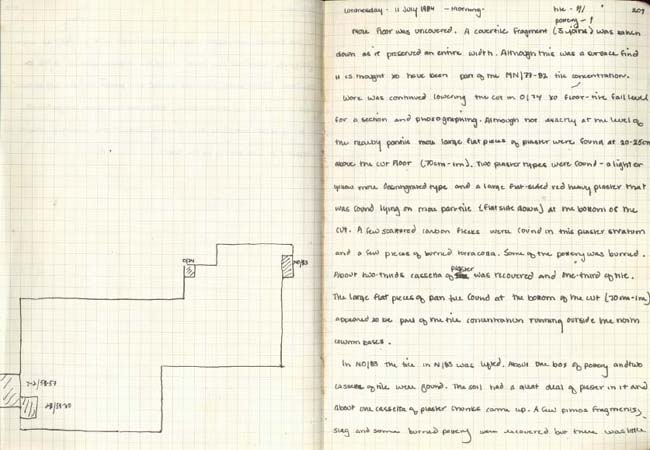 Wednesday - 11 July 1984 - Morning.
tile - 9/1
pottery - 1
209
More floor was uncovered. A covertile fragment (5 joins) was taken
down as it preserved an entire width. Although this was a surface find
it is thought to have been part of the MN/77-82 tile concentration.
Work was continued lowering the cut in O/74 to floor-tile fall level
for a section and photographing. Although not exactly at the level of
the nearby pantile more large flat pieces of plaster were found at 20-25cm
above the cut floor (70cm-1m). Two plaster types were found - a lighter
yellow more disintegrated type and a large flat-sided red heavy plaster that
was found lying on more pantile (flat side down) at the bottom of the
cut. A few scattered carbon flecks were found in this plaster stratum
and a few pieces of burned terracotta. Some of the pottery was burned.
About two-thirds cassetta of plaster was recovered and one-third of tile.
The large flat pieces of pan tile found at the bottom of the cut (70cm-1m)
appeared to be part of the tile concentration running outside the north
column bases.
In NO/83 the tile in N/83 was lifted. About one box of pottery and two
cassette of tile were found. The soil had a great deal of plaster in it and
about one cassetta of plaster chunks came up. A few pithos fragments,
slag and some burned pottery were recovered but there was little
O/74
NO/83